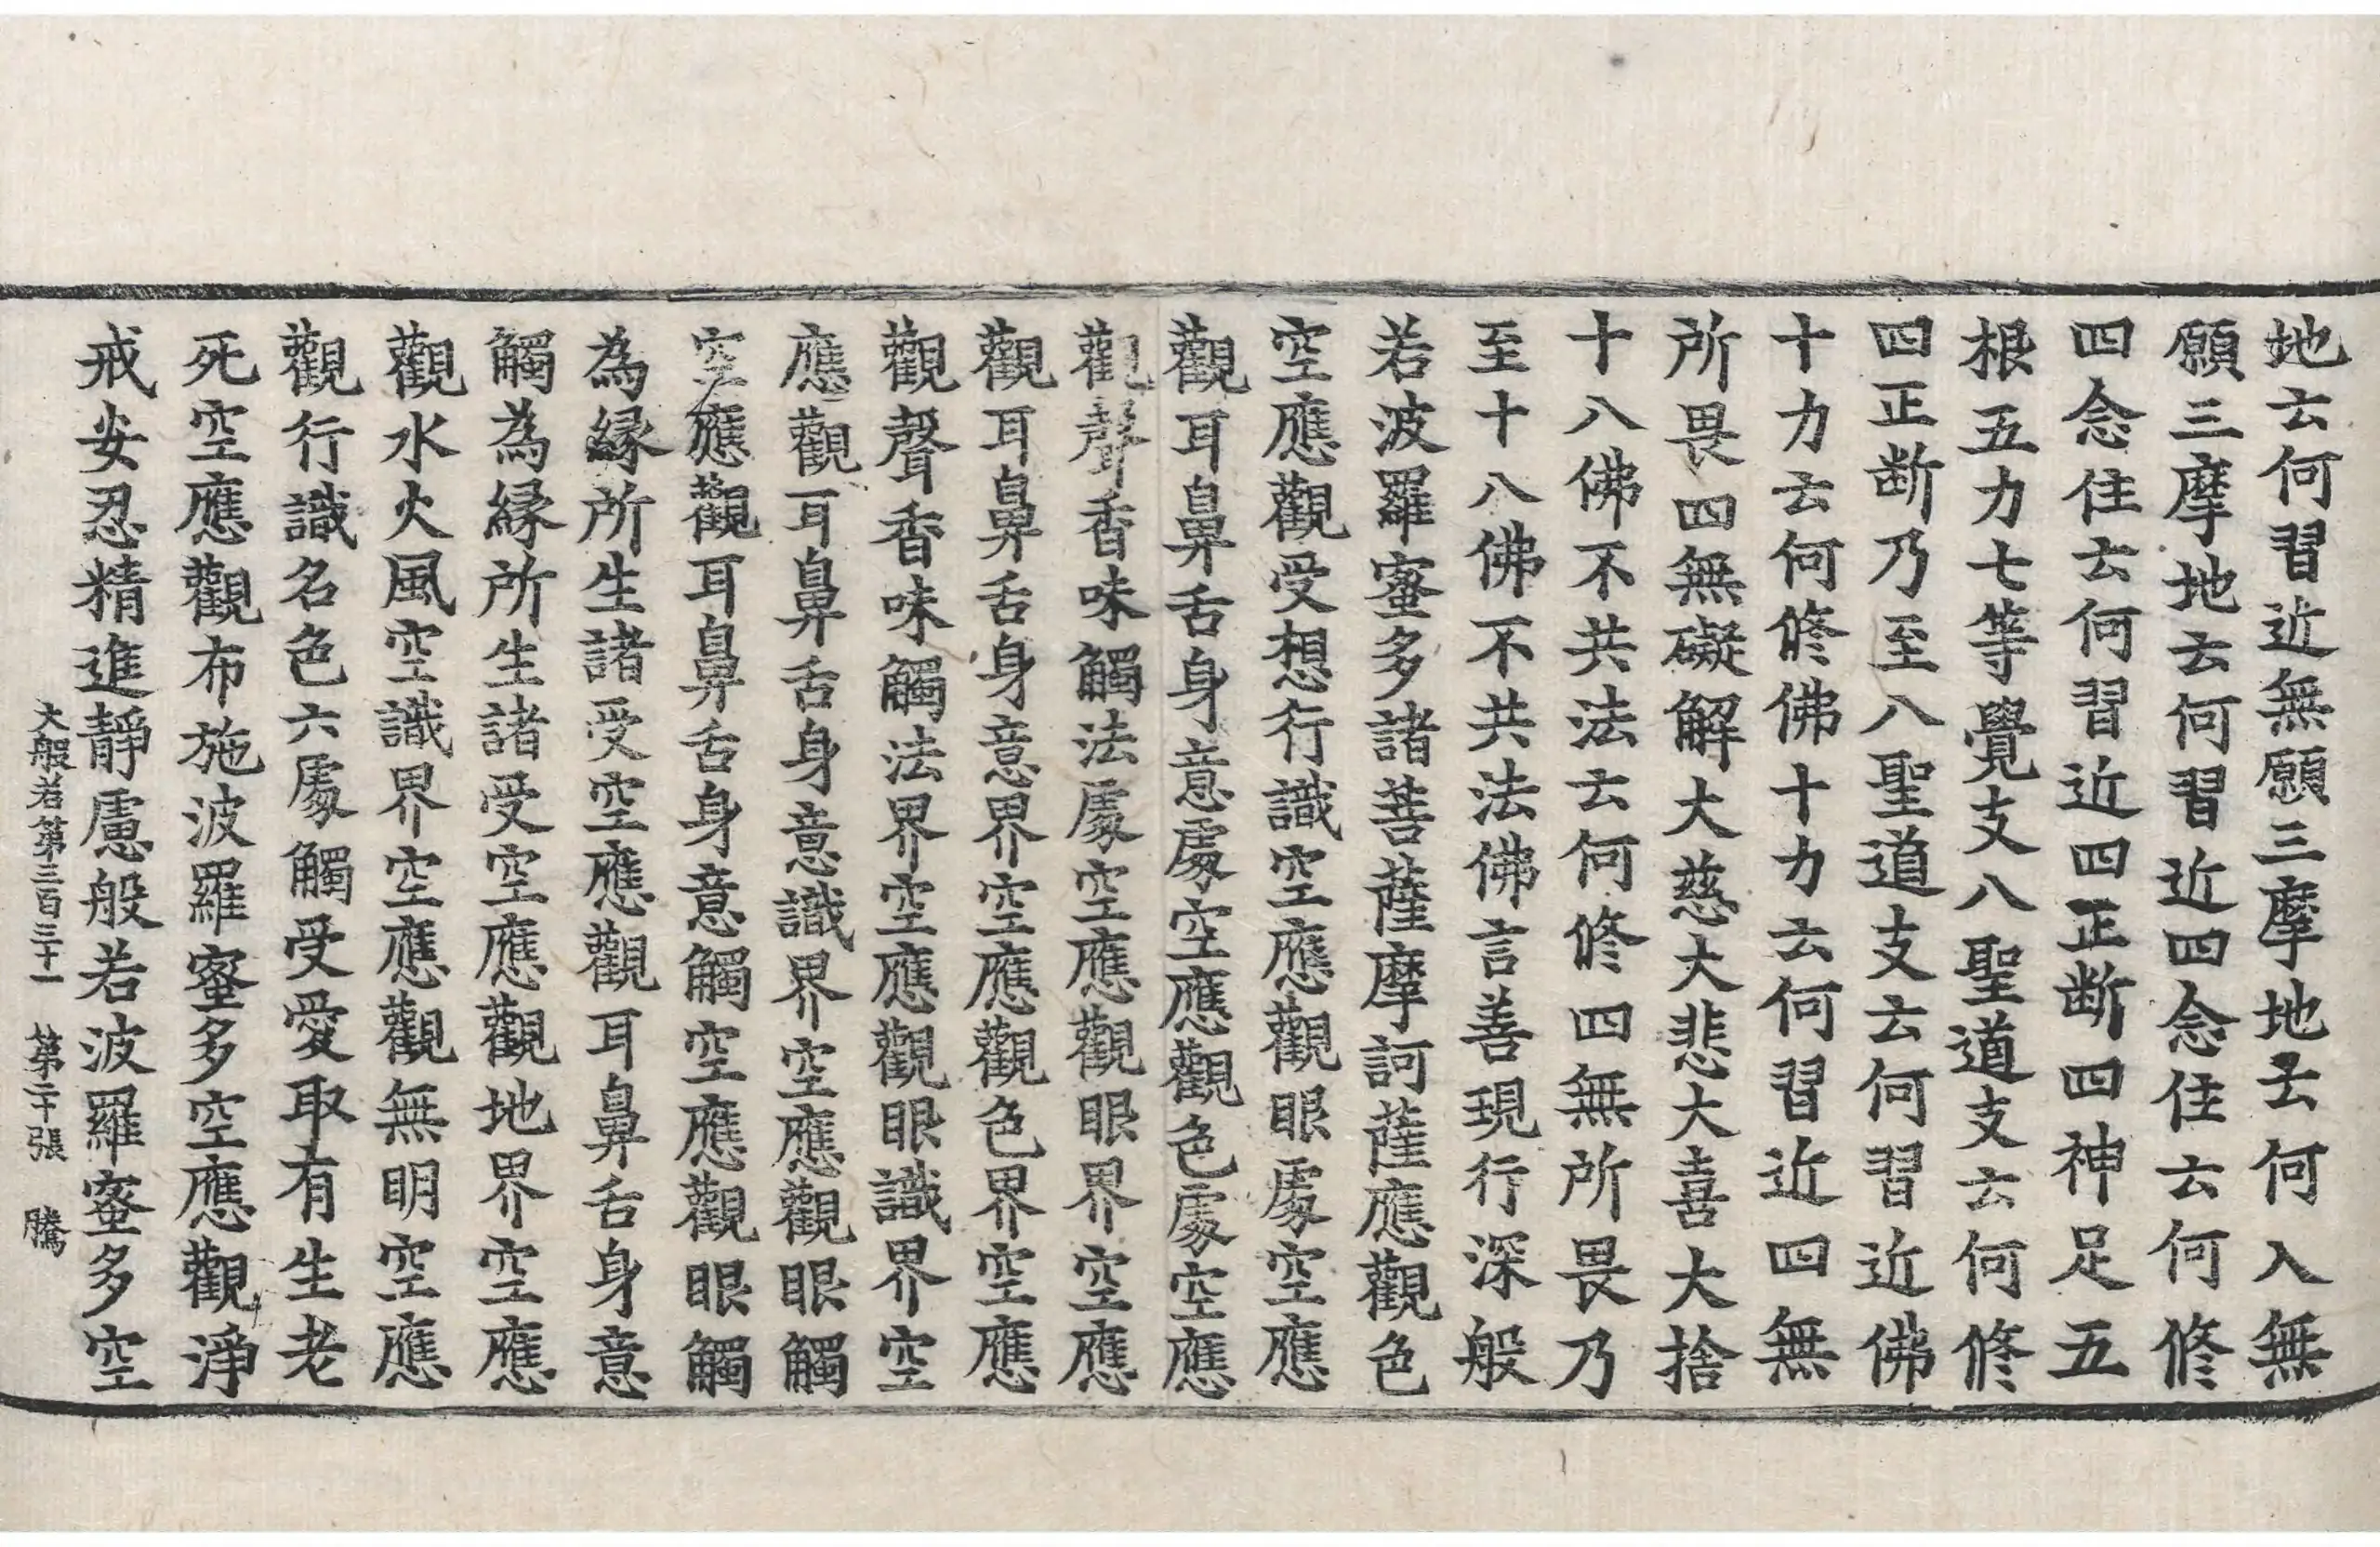 地云何習近無願三摩地云何入無
願三摩地云何習近四念住云何修
四念住云何習近四正断四神足五
根五力七等覺支八聖道支云何修
四正断乃至八聖道支云何習近佛
十力云何修佛十力云何習近四無
所畏四無礙解大慈大悲大喜大捨
十八佛不共法云何修四無所畏乃
至十八佛不共法佛言善現行深般
若波羅蜜多諸菩薩摩訶薩應觀色
空應觀受想行識空應觀眼處空應
觀耳鼻舌身意處空應觀色處空應
觀聲香味觸法處空應觀眼界空應
觀耳鼻舌身意界空應觀色界空應
觀聲香味觸法界空應觀眼識界空
應觀耳鼻舌身意識界空應觀眼觸
空應觀耳鼻舌身意觸空應觀眼觸
為緣所生諸受空應觀耳鼻舌身意
觸為緣所生諸受空應觀地界空應
觀水火風空識界空應觀無明空應
觀行識名色六處觸受愛取有生老
死空應觀布施波羅蜜多空應觀淨
戒安忍精進靜慮般若波羅蜜多空
大般若第三百三十一 第二十張 騰